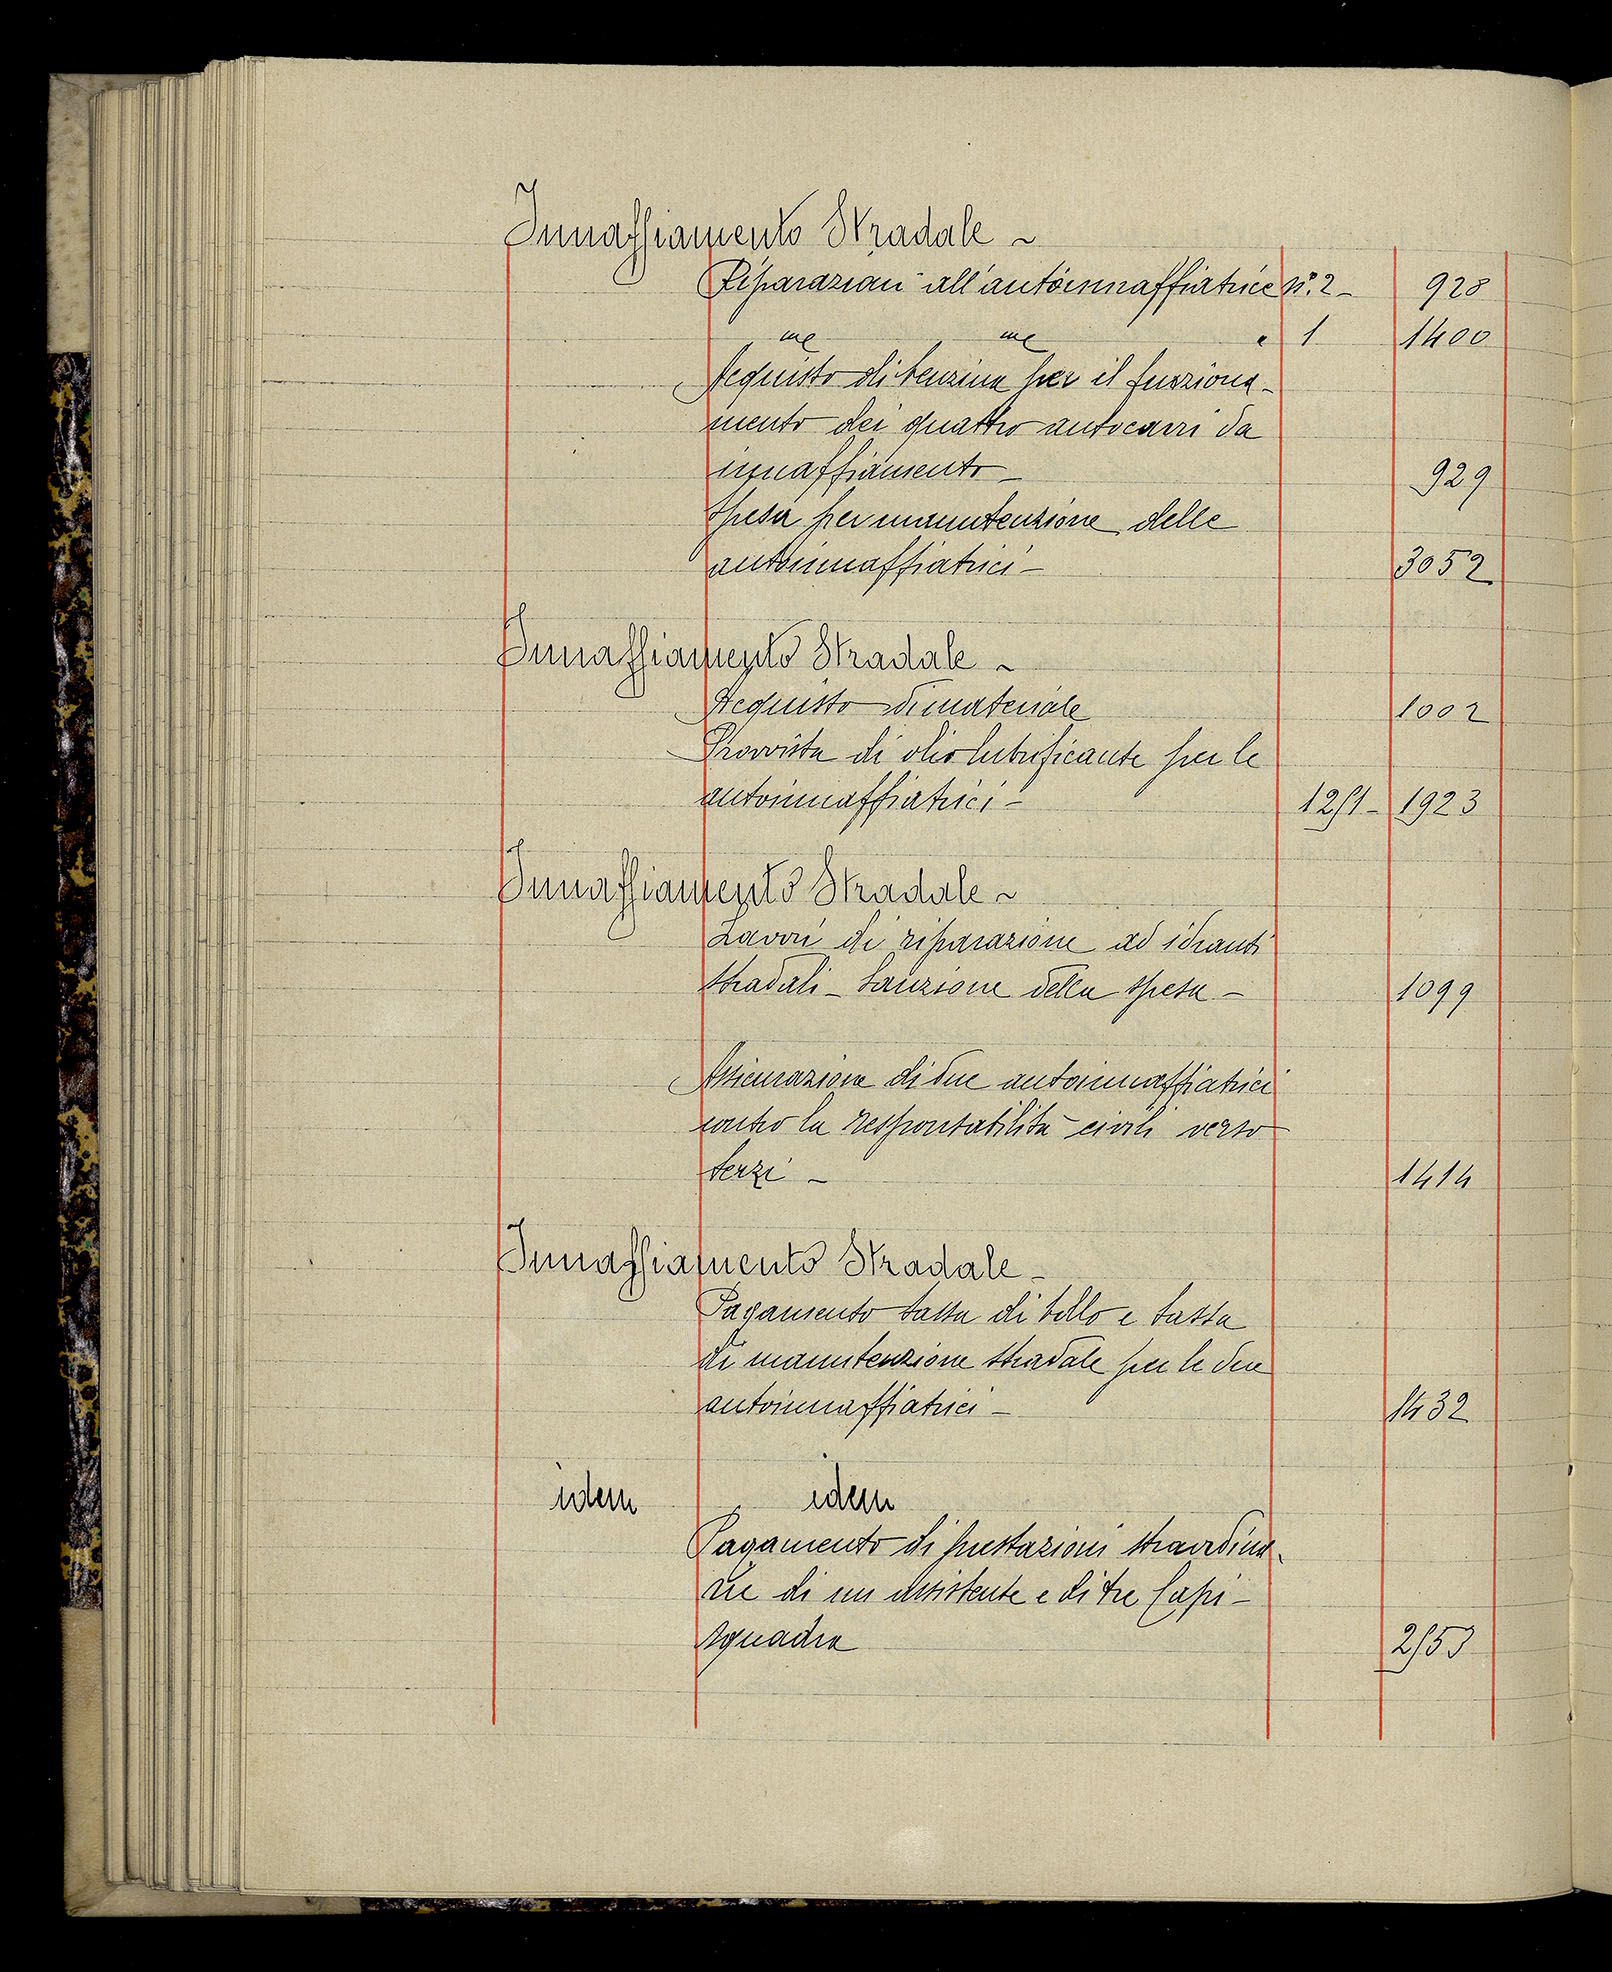 Innaffiamento Stradale ~
Riparazioni all'autoinnaffiatrice n.° 2 - 928
" 1 1400
Acquisto di benzina per il funziona-
mento dei quattro autocarri da
innaffiamento - 929
Spesa per manutenzione delle
autoinnaffiatrici - 3052
Innaffiamento Stradale ~
Acquisto di materiale 1002
Provvista di olio lubrificante per le
autoinnaffiatrici - 1251 - 1923
Innaffiamento Stradale ~
Lavori di riparazione ad idranti
stradali - Sanzione della spesa - 1099
Assicurazione di due autoinnaffiatrici
contro la responsabilità civili verso
terzi - 1414
Innaffiamento Stradale -
Pagamento tassa di bollo e tassa
di manutenzione stradale per le due
autoinnaffiatrici - 1432
idem idem
Pagamento di prestazioni straordina-
rie di un assistente e di tre Capi-
squadra 2553